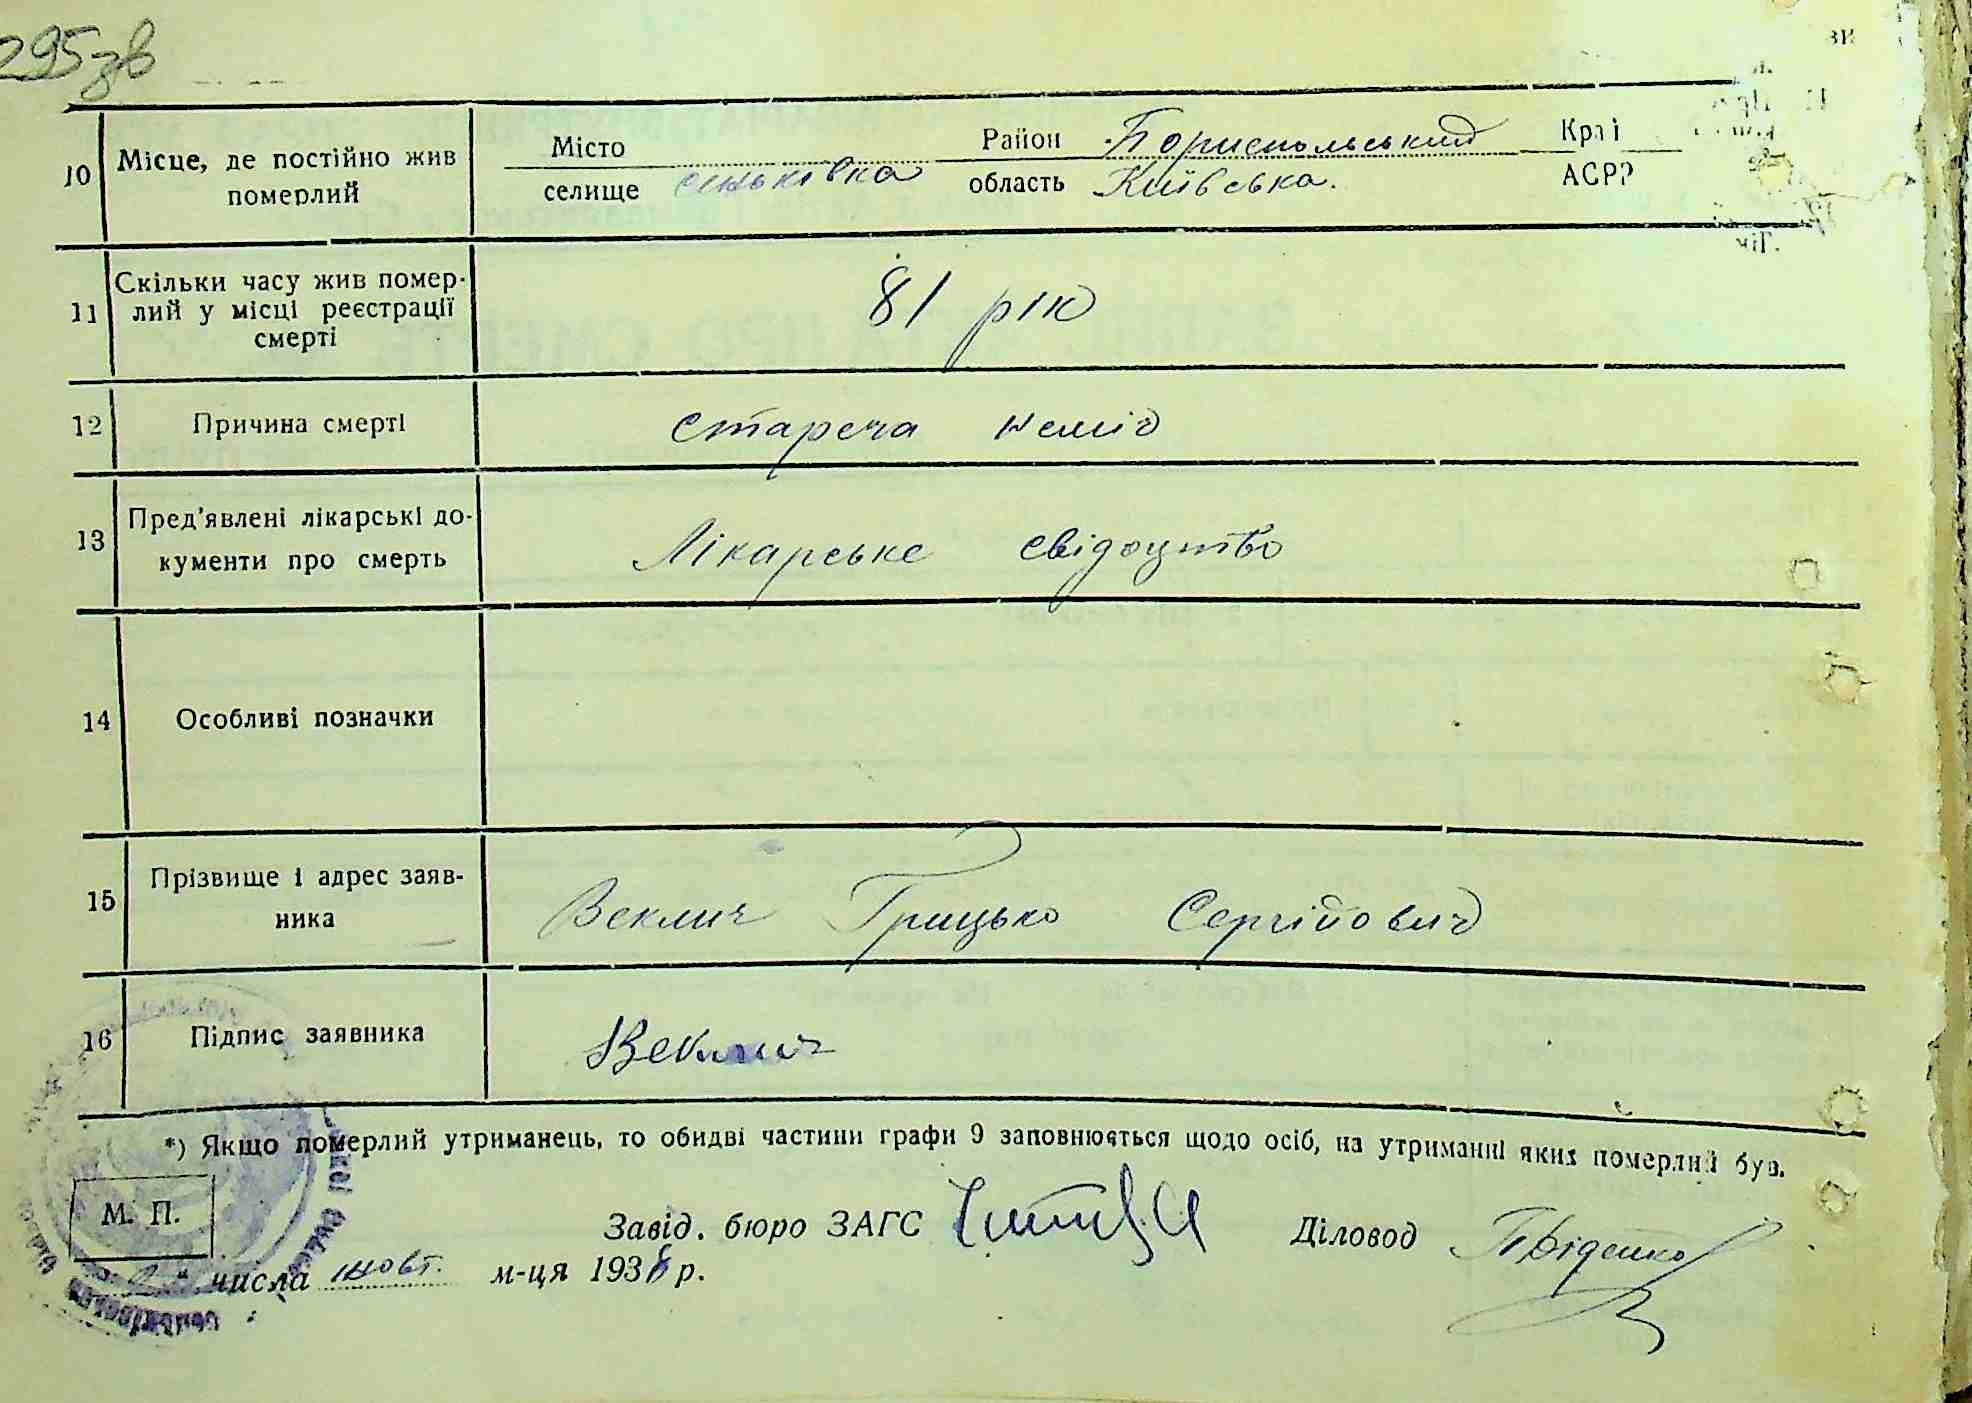 295зв
10 Місце, де постійно жив померлий
Місто Район Бориспольський Край
селище сеньковка область Київська. АСРР
11 Скільки часу жив помер-
лий у місці реєстрації
смерті
81 рік
12 Причина смерті стареча неміч
13 Пред'явлені лікарські до-
кументи про смерть
Лікарське свідоцтво
14 Особливі позначки
15 Прізвище і адрес заяв-
ника
Веклич Грицько Сергійович
16 Підпис заявника Веклич
*) Якщо померлий утриманець, то обидві частини графи 9 заповнюються щодо осіб, на утриманні яких померлий був.
М. П.
Завід. бюро ЗАГС Діловод
числа жовт. м-ця 1938 р.